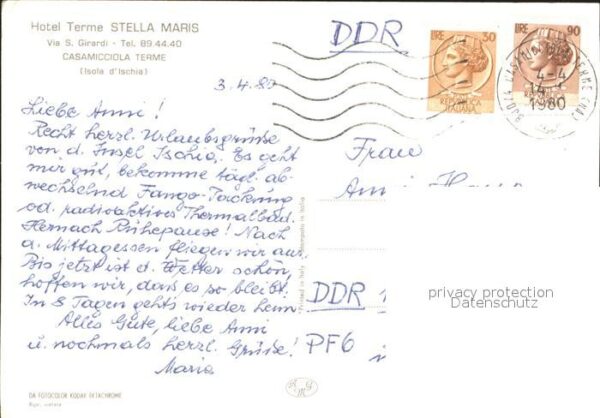 Hotel Terme STELLA MARIS
Via S. Girardi - Tel. 89.44.40
CASAMICCIOLA TERME
(Isola d'Ischia)
DDR
LIRE 50
LIRE 90
4-4
1980
3.4.80
Liebe Anni!
Recht herzl. Urlaubsgrüße
von d. Insel Ischia. Es geht
mir gut, bekomme tägl. ab-
wechselnd Fango-Packung
od. radioaktives Thermalbad.
Hernach Ruhepause! Nach
d. Mittagessen fliegen wir aus.
Bis jetzt ist d. Wetter schön,
hoffen wir, dass es so bleibt.
In 8 Tagen gehts wieder heim
Alles Gute, liebe Anni
u. nochmals herzl. Grüße!
Maria
Frau
DDR
PF6
privacy protection
Datenschutz
DA FOTOCOLOR KODAK EKTACHROME
Ripr. vietata